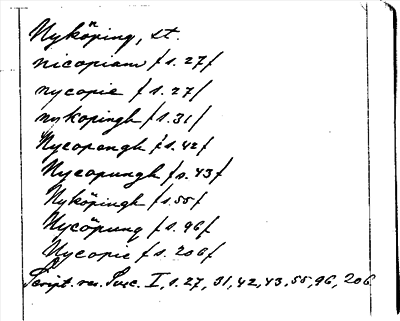 Nyköping, st.
nicopiam /s. 27/
nycopie /s. 27/
nykopingh /s. 31/
Nycopengh /s. 42/
Nycopungh /s. 43/
Nyköpingh /s. 55/
Nycöpung /s. 96/
Nycopie /s. 206/
Script. rer. Svec. I, s. 27, 31, 42, 43, 55, 96, 206.